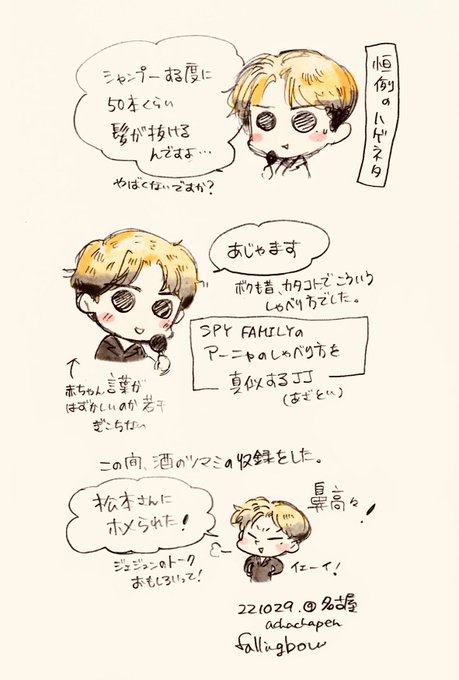 恒例のハゲネタ
シャンプーする度に
50本くらい
髪が抜ける
んですよ…
やばくないですか?
あじゃます
ボクも昔、カタコトでこういう
しゃべり方でした。
SPY FAMILYの
アーニャのしゃべり方を
真似するJJ
(あざとい)
↑
赤ちゃん言葉が
はずかしいのか若干
ぎこちない
この間、酒のツマミの収録をした。
松本さんに
ホメられた!
ジェジュンのトーク
おもしろいって!
鼻高々!
イェーイ!
221029.@名古屋
achachapen
fallingbow